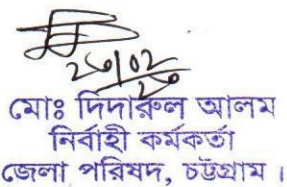 মোঃ দিদারুল আলম
নির্বাহী কর্মকর্তা
জেলা পরিষদ, চট্টগ্রাম।